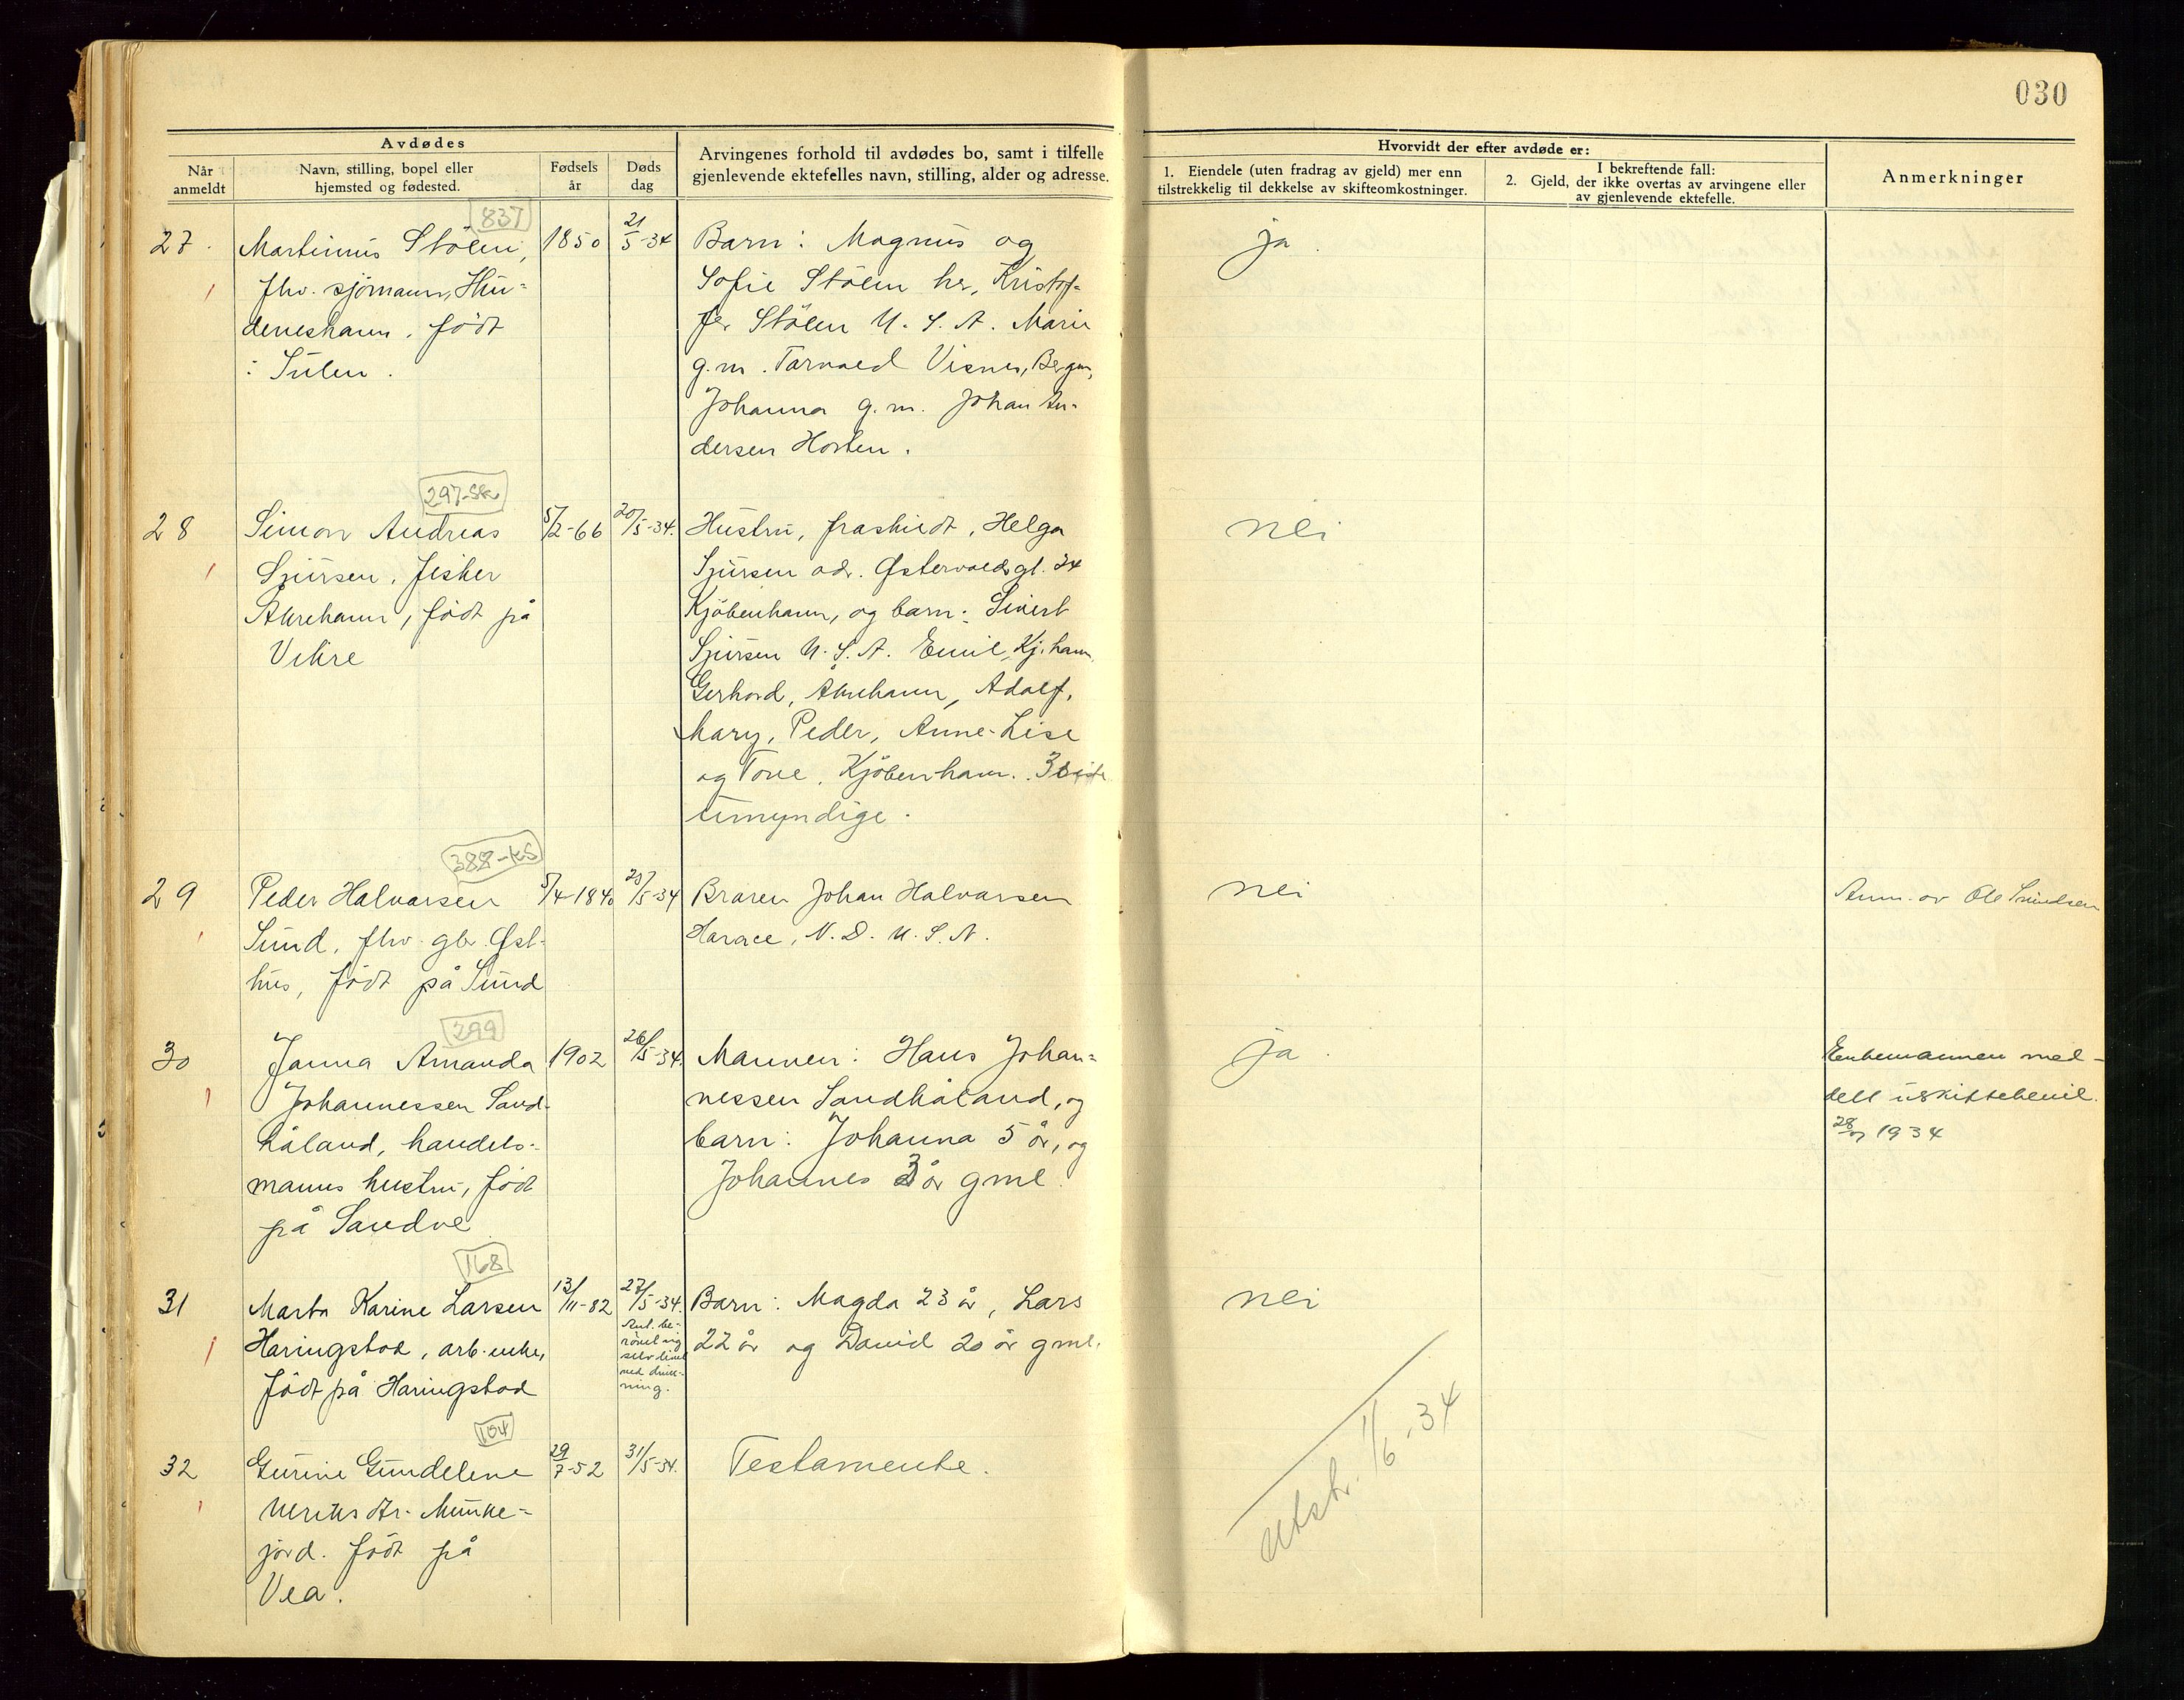 030
Avdødes
Når anmeldt
Navn, stilling, bopel eller hjemsted og fødested.
Fødsels år
Døds dag
Arvingenes forhold til avdødes bo, samt i tilfelle
gjenlevende ektefelles navn, stilling, alder og adresse.
Hvorvidt der efter avdøde er:
1. Eiendele (uten fradrag av gjeld) mer enn
tilstrekkelig til dekkelse av skifteomkostninger.
I bekreftende fall:
2. Gjeld, der ikke overtas av arvingene eller
av gjenlevende ektefelle.
Anmerkninger
837
27.
Martinus Stölen,
fhv. sjömann, Hu-
deneshavn. födt
i Sulen.
1850
21/5-34
Barn: Magnus og
Sofie Stölen her, Kristof-
fer Stölen U.S.A. Marie
g.m. Torvald Visnes, Bergen,
Johanna g.m. Johan An-
dersen Horten.
ja.
297-Sk
28
Simon Andreas
Sjursen, fisker
Åkrehavn, födt på
Vikre
5/2-66
20/5-34.
Hustru, fraskildt, Helga
Sjursen adr. Østervoldsgt. 34
Kjöbenhavn, og barn: Sivert
Sjursen U.S.A. Emil, Kj.havn,
Gerhard, Åkrehavn, Adolf,
Mary, Peder, Anne-Lise
og Tove, Kjöbenhavn. 3 siste
umyndige.
nei
388-KS
29
Peder Halvorsen
Sund, fhv. gbr. Øst-
hus, födt på Sund
5/4-1840
20/5-34
Broren Johan Halvorsen
Horace, N.D. U.S.A.
nei
Anm. av Ole Simdsen
299
30
Janna Amanda
Johannessen Sand-
håland, handels-
manns hustru, födt
på Sandve
1902
26/5-34.
Mannen: Hans Johan-
nessen Sandhåland, og
barn: Johanna 5 år, og
Johannes 3 år gml.
ja.
Enkemannen med-
delt uskiftebevil.
28/9 1934
168
31
Marta Karine Larsen
Haringstad, arb.enke,
födt på Haringstad
13/11-82
27/5-34.
Ant. be-
rövet sig
selv livet
ved druk-
ning.
Barn: Magda 23 år, Lars
22 år og David 20 år gml.
nei
104
32
Gurine Gundeline
Ulriksdtr. Munke-
jord. födt på
Vea.
29/7-52
31/5-34.
Testamente.
Utskr. 1/6.34